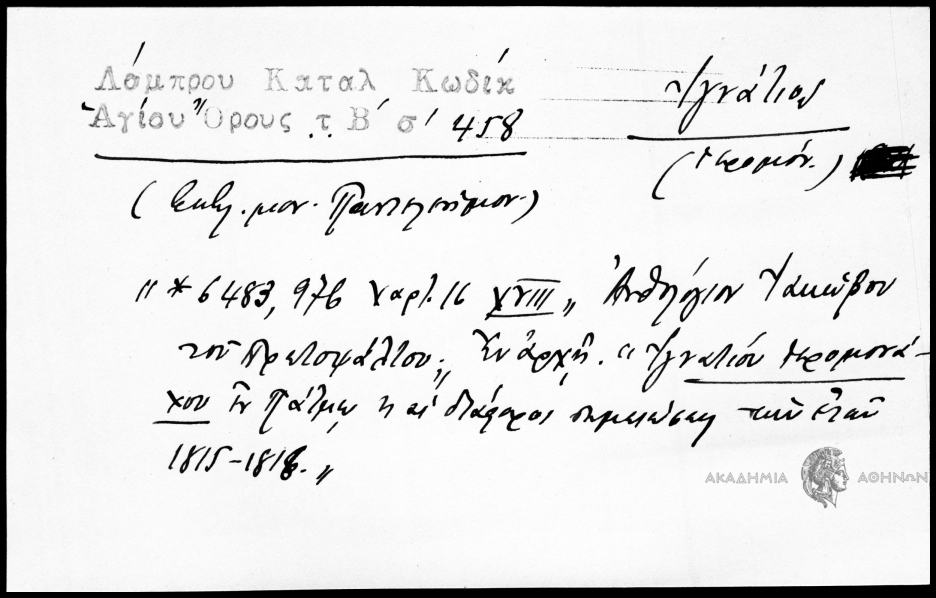 Λάμπρου Καταλ Κωδίκ
Ἁγίου Ὄρους τ Β΄ σ΄ 458
Ἰγνάτιος
(ἱερομόν.)
(Ἐν τῇ μον. Παντελεήμον.)
"* 6483, 976 Χαρτ. 16 XVIII„ Ἀνθολόγιον Ἰακώβου
τοῦ Πρωτοψάλτου„ Ἐν ἀρχῇ. "Ἰγνατίου ἱερομονά-
χου ἐν Πάτμῳ καὶ διάφοροι σημειώσεις τῶν ἐτῶν
1815-1818.„
ΑΚΑΔΗΜΙΑ ΑΘΗΝΩΝ